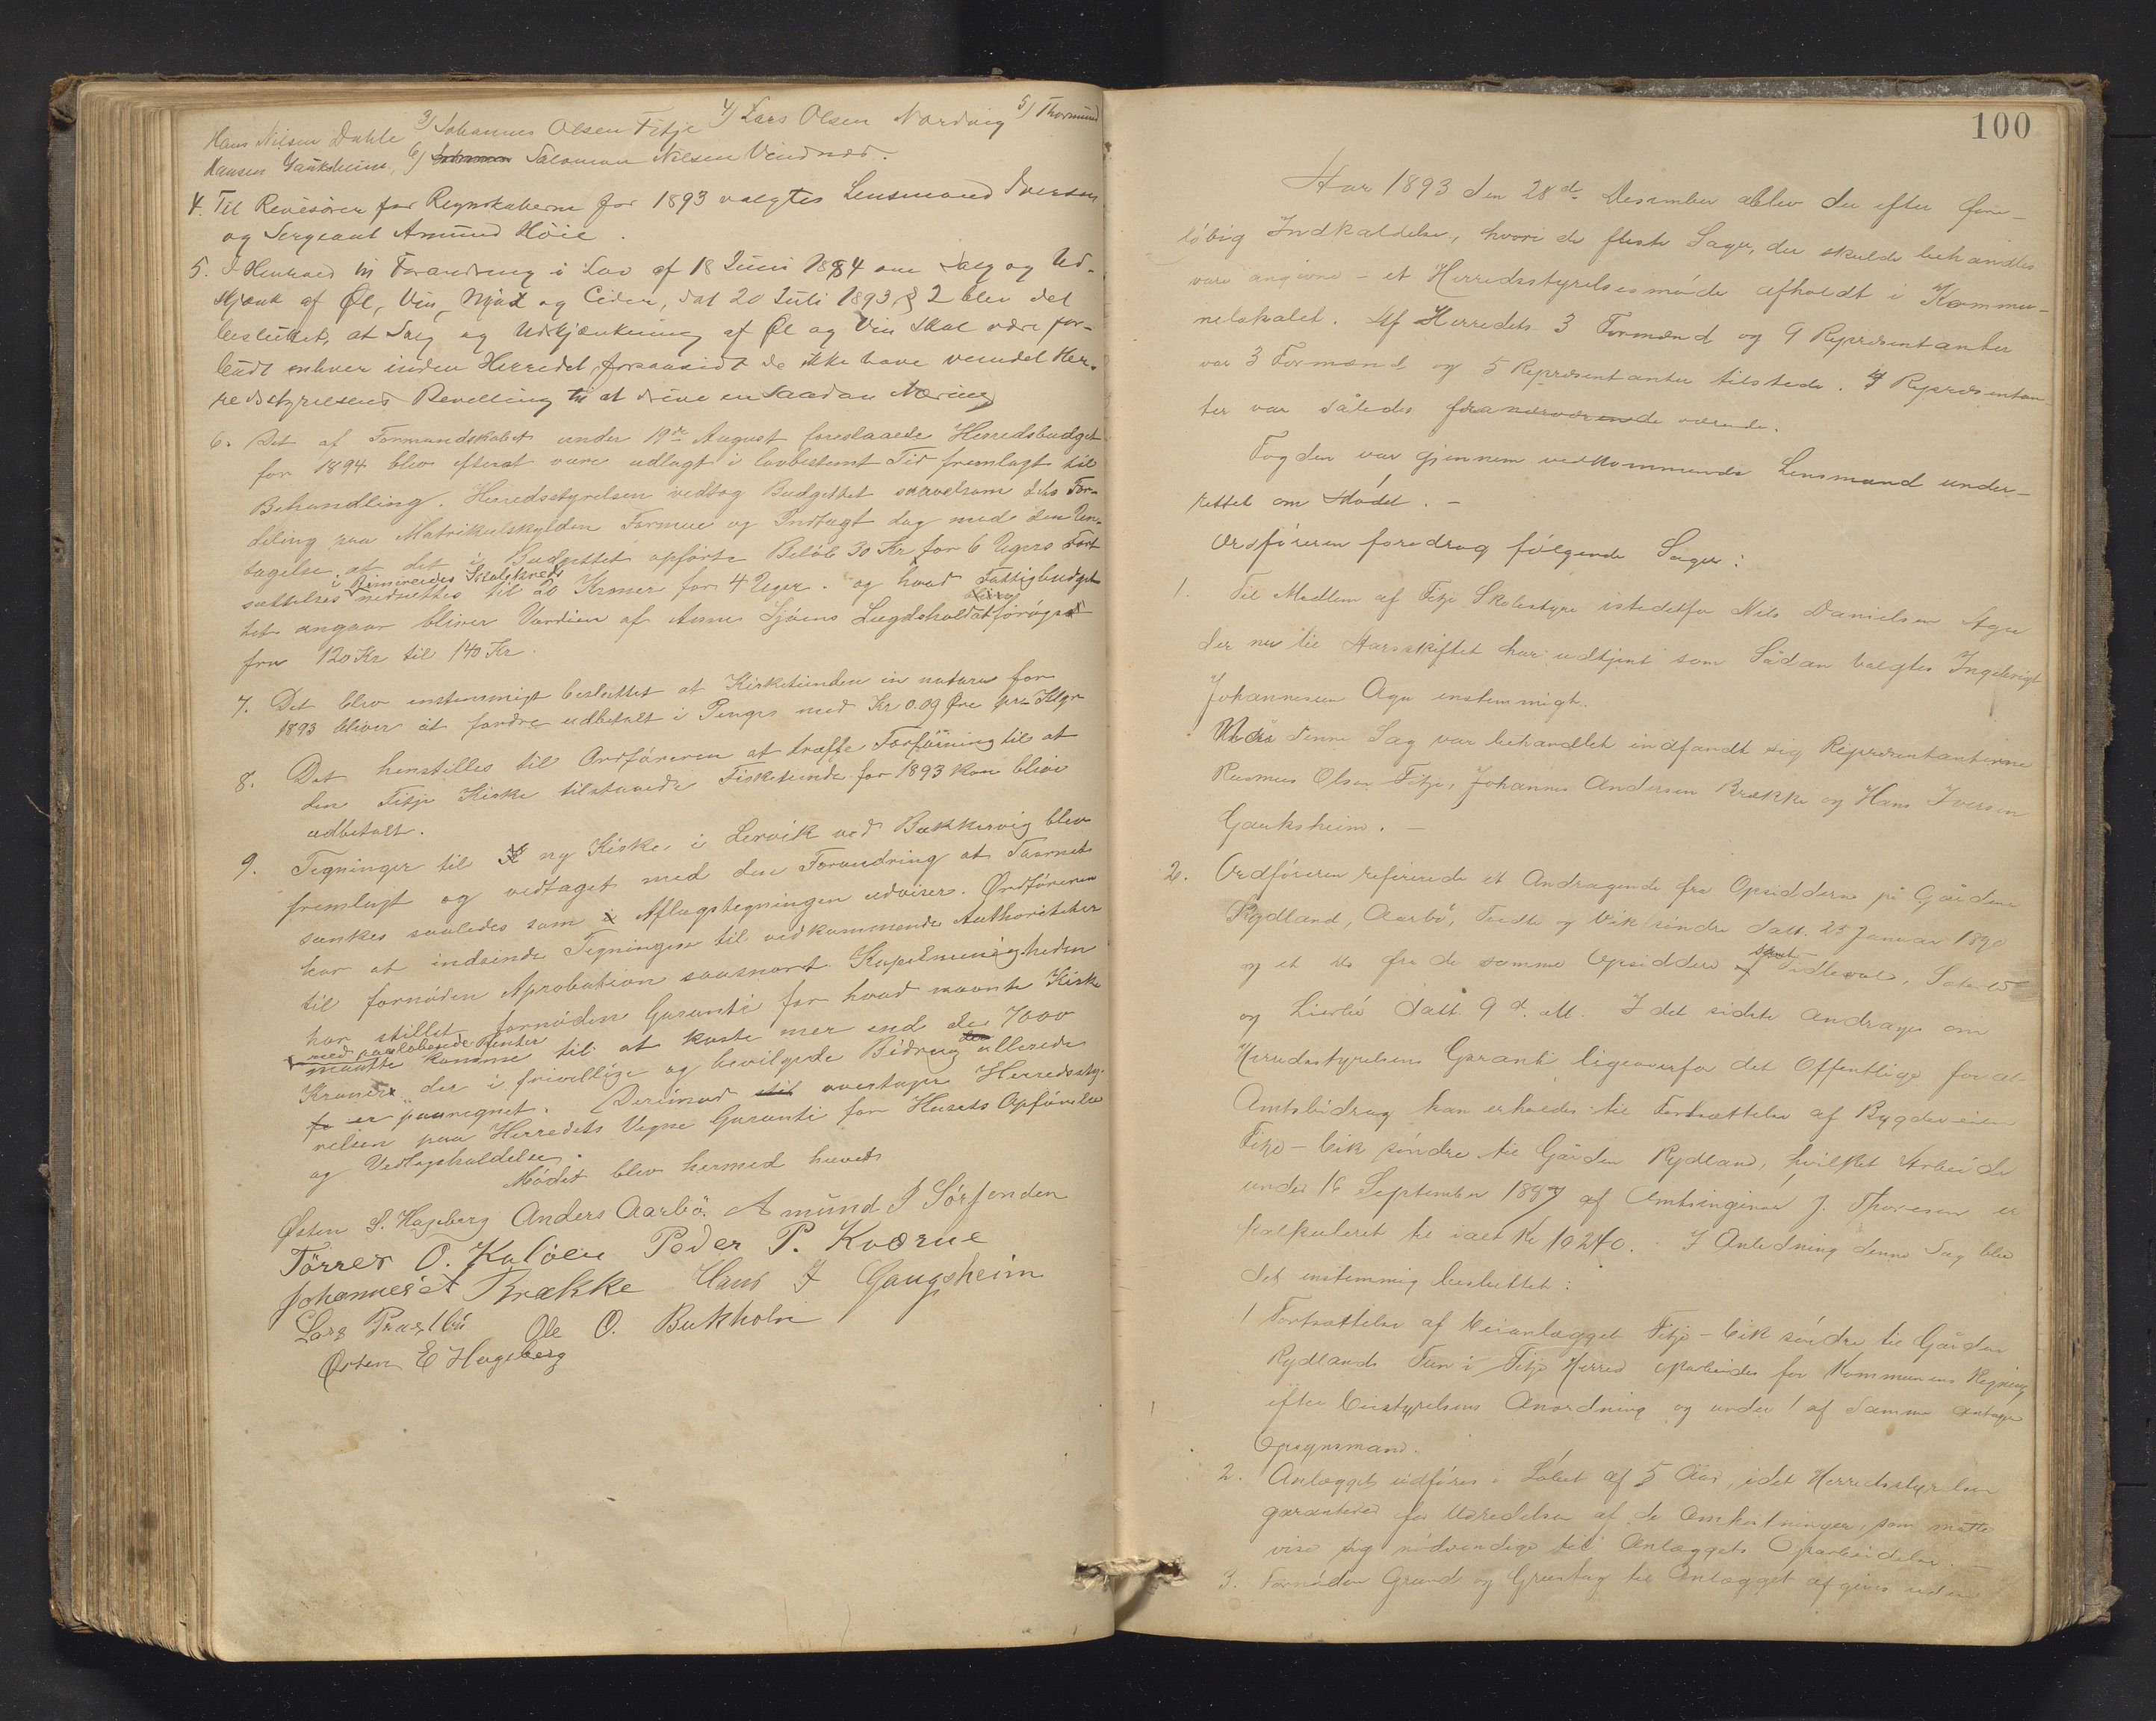 Hans Nilsen Dahle 3) Johannes Olsen Fitje 4) Lars Olsen Nordvig 5) Thormund
Hansen Gauksheim, 6) Salomon Nilsen Vindnæs.
4. Til Revisorer for Regnskaberne for 1893 valgtes Lensmand Iversen
og Sergeant Amund Höie.
5. I Henhold til Forandring i Lov af 18 Juni 1884 om Salg og Ud-
skjænk af Øl, Vin, Mjød og Cider, dat 20 Juli 1893 § 2 blev det
besluttet, at Salg og Udskjænkning af Øl og Vin skal være for-
budt enhver inden Herredet, forsaavidt de ikke have vundet Her-
redsstyrelsens Bevilling til at drive en saadan Næring
6. Det af Formandskabet under 19de August foreslaaede Herredsbudget
for 1894 blev efterat være udlagt i lovbestemt Tid fremlagt til
Behandling. Herredsstyrelsen vedtog Budgettet saavelsom dets For-
deling paa Matrikulskylden Formue og Indtægt dog med den Und-
tagelse, at det i Budgettet opførte Beløb 30 Kr for 6 Ugers Fort
i Rimereides Skolekreds
sættelses nedsættes til 20 Kroner for 4 Uger. og hvad Fattigbudget
tet angaar bliver Værdien af Annes Lægdshold at forøges
fra 120 Kr til 140 Kr.
7. Det blev enstemmigt besluttet at Kirketienden in natura for
1893 bliver at fordre udbetalt i Penger med Kr 0.09 Øre pr. Klgr
8. Det henstilles til Ordføreren at træffe Forføining til at
den Fitje Kirke tilstaaede Fisketiende for 1893 kan blive
udbetalt.
9. Tegninger til ny Kirke i Lervik ved Bækkervig blev
fremlagt og vedtaget med den Forandring at Taarnet
sænkes saaledes som Aflægstegningen udviser. Ordføreren
har at indsende Tegningerne til vedkommende Authoriteter
til fornøden Aprobation saasnart Kapelmenigheden
har stillet fornøden Garanti for hvad nævnte Kirke
med paaløbende Renter
maatte komme til at koste mer end de 7000
Kroner, der i frivillige og bevilgede Bidrag allerede
er paaregnet. Derimod overtager Herredssty-
relsen paa Herredets Vegne Garanti for Husets Opførelse
og Vedligeholdelse.
Mödet blev hermed hævet
Østen S. Hageberg Anders Aarbö. Amund J Sörfonden
Törres O. Kalöen Peder P. Kværne
Johannes A Brække Hans J Gaugsheim
Lars Præstbö Ole O. Bukholm
Østen E Hageberg
100
Aar 1893 den 28de Desember blev der efter fore-
löbig Indkaldelse, hvori de fleste Sager, der skulde behandles
vare angivne - et Herredsstyrelsesmöde afholdt i Kommu-
nelokalet. Af Herredets 3 Formænd og 9 Repræsentanter
var 3 Formænd og 5 Repræsentanter tilstede. 4 Repræsentan
ter var således fraværende værende.
Fogden var gjennem vedkommende Lensmand under-
rettet om Mödet. -
Ordföreren foredrog fölgende Sager:
1. Til Medlem af Fitje Skolestyre istedetfor Nils Danielsen Aga
der nu til Aarsskiftet har udtjent som Sådan valgtes Ingebrigt
Johannesen Aga enstemmigt.
Da denne Sag var behandlet indfandt sig Repræsentanterne
Rasmus Olsen Fitje, Johannes Andersen Brække og Hans Iversen
Gauksheim. -
2. Ordföreren refererede et Andragende fra Opsidderne på Gårdene
Rydland, Aarbö, Tvedte og Vik söndre Datt. 25 Januar 1890
og et do fra de samme Opsiddere samt Tidleval, Sæter
og Lierbö datt. 9 d. ds. I det sidste andrages om
Herredsstyrelsens Garanti ligeoverfor det Offentlige for at
Amtsbidrag kan erholdes til Fortsættelse af Bygdeveien
Fitje - Vik söndre til Gården Rydland, hvilket Arbeide
under 16 September 1887 af Amtsingeniør J. Thoresen er
kalkuleret til ialt Kr 10240. I Anledning denne Sag blev
det enstemmig besluttet:
1 Fortsættelse af Veianlægget Fitje - Vik söndre til Gården
Rydlands Tun i Fitje Herred oparbeides for Kommunens Regning
efter Veistyrelsens Anordning og under 1 af Samme antagen
Opsynsmand.
2. Anlægget udföres i Löbet af 5 Aar, idet Herredsstyrelsen
garanterer for Udredelse af de Omkostninger, som måtte
vise sig nödvendige til Anlæggets Oparbeidelse. -
3. Fornöden Grund og Grustag til Anlægget afgives uden